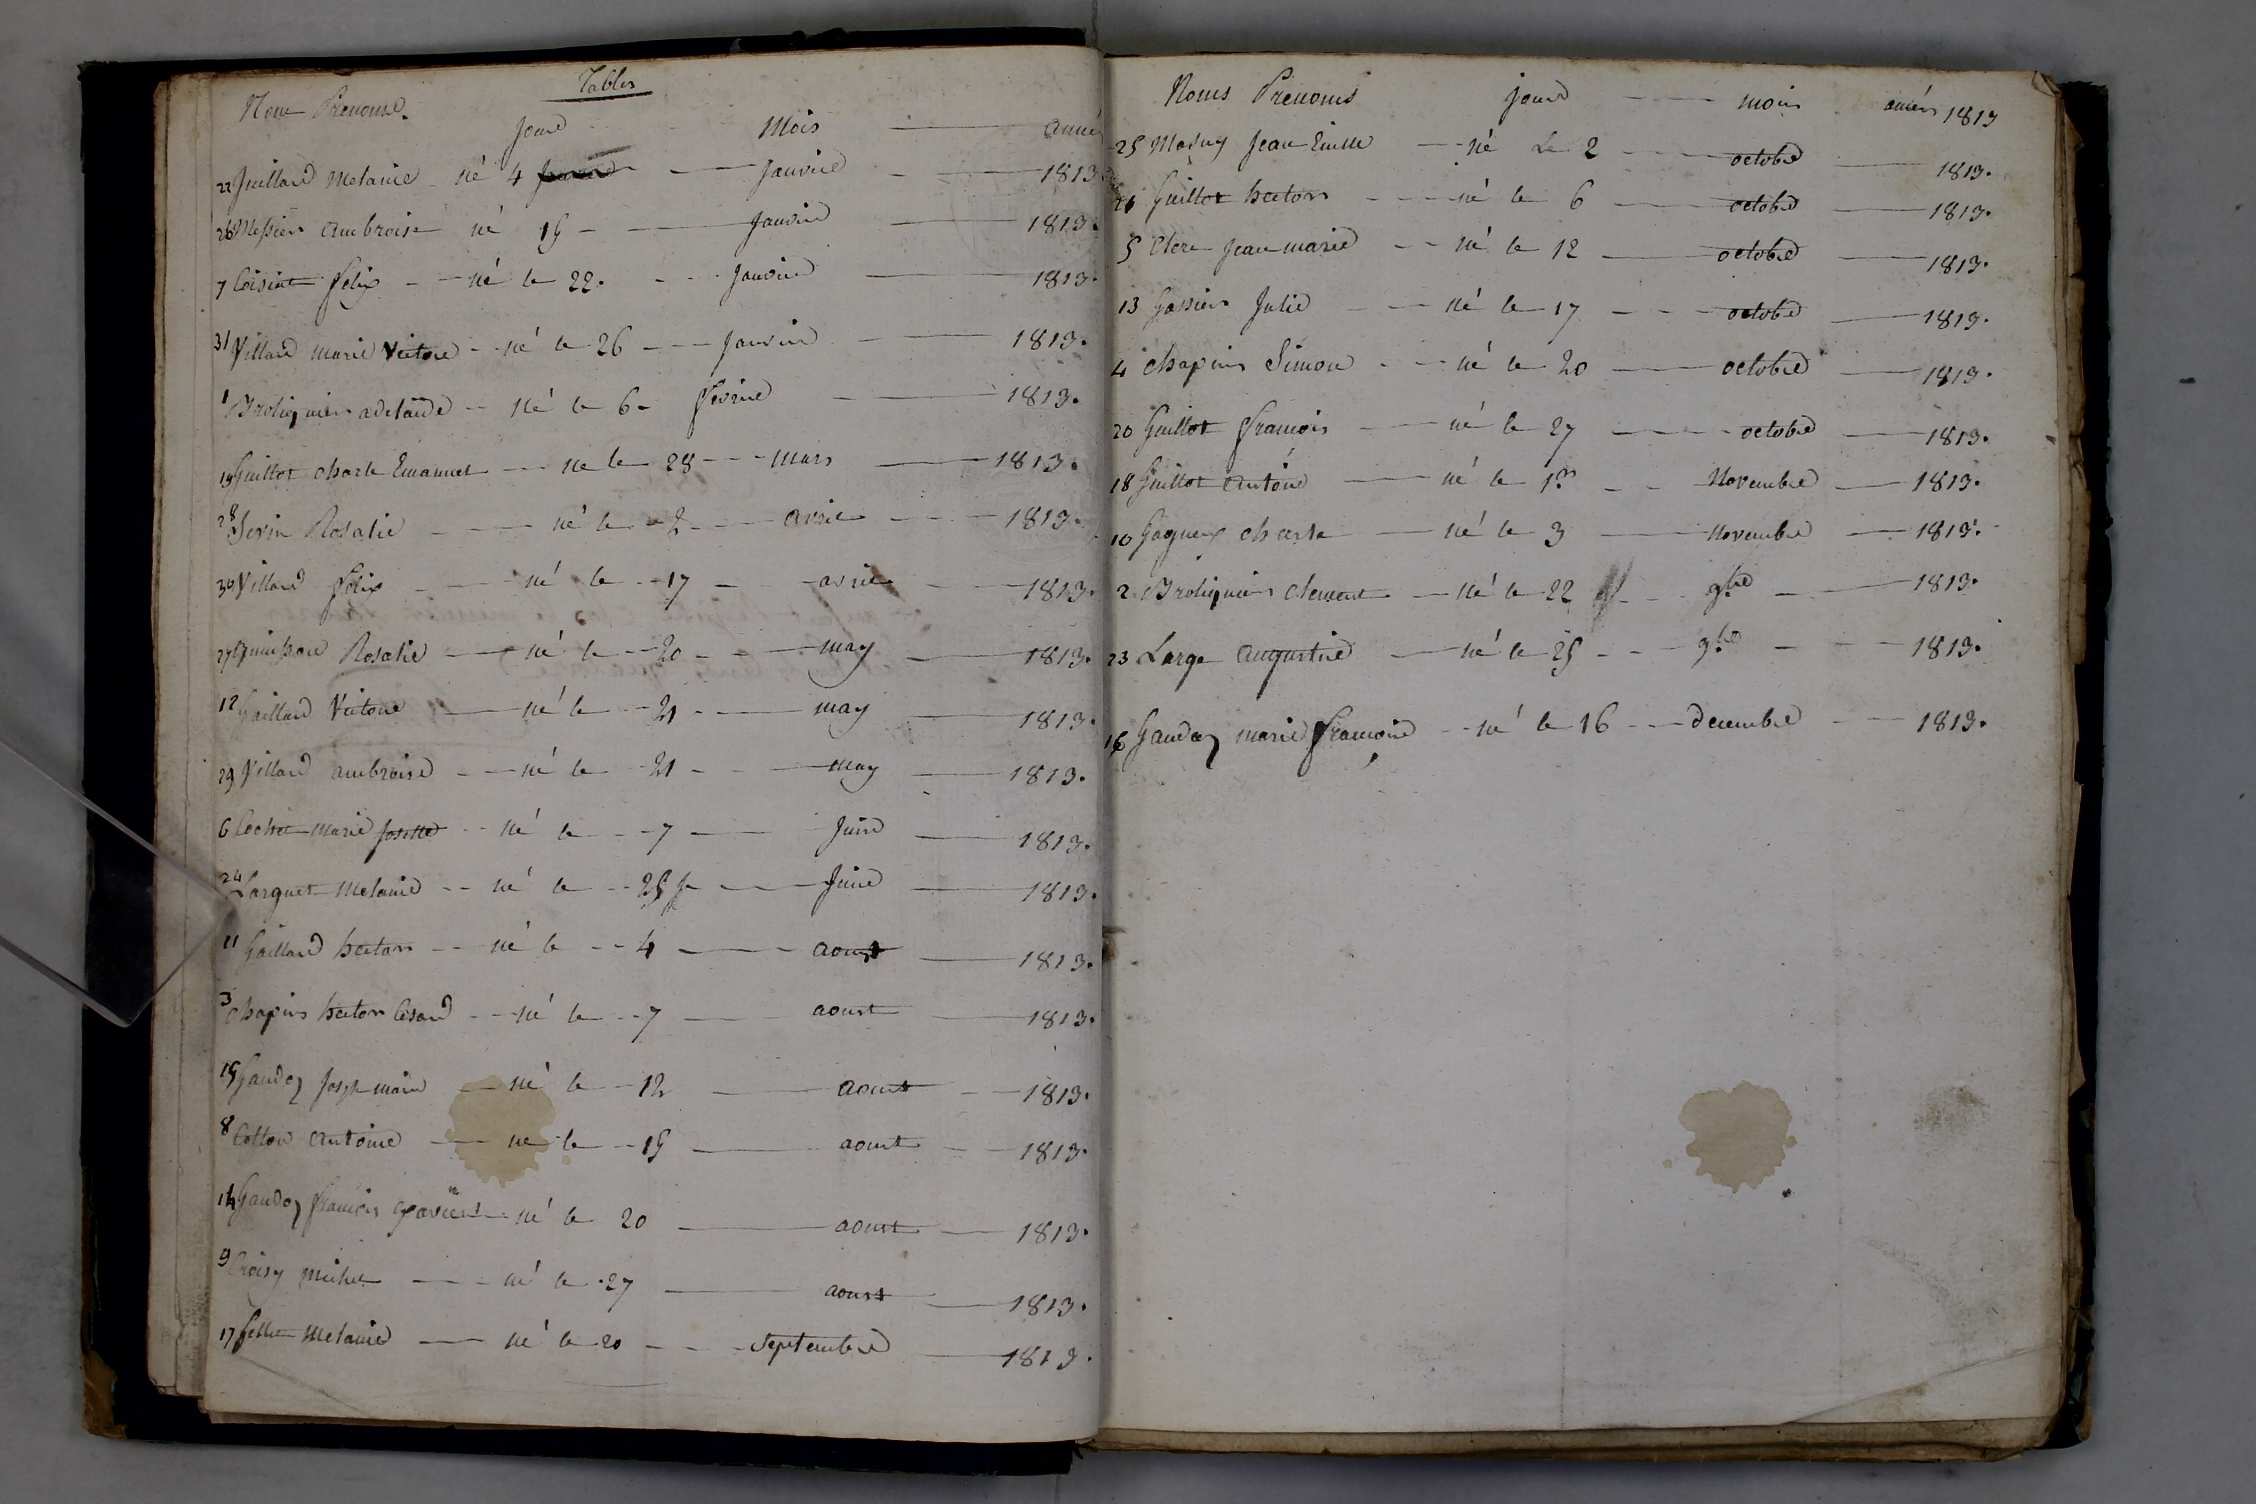 Tables
Nom Prenoms.
Jours Mois année
22 Juillard Melanie né 4 Janvier 1813
26 Messier ambroise né 19 Janvier 1813.
7 Coisint felix né le 22. Janvier 1813.
31 Villard Marie Victoire né le 26 Janvier 1813.
1 Broliquier adelaide né le 6 fevrier 1813.
19 Guillot charle Emanuel né le 28 Mars 1813.
28 Servin Rosalie né le 2 avril 1813.
30 Villard felix né le 17 avril 1813.
27 Rosalie né le 20 may 1813.
12 Gaillard Victoire né le 21 may 1813.
29 Villard ambroise né le 21 may 1813.
6 Cochet Marie Josette né le 7 Juin 1813.
24 Larguet Melanie né le 25 Juin 1813.
11 Gaillard hector né le 4 aoust 1813.
3 Chapuis hector Cesard né le 7 aoust 1813.
15 Gaudoz Josp marie né le 12 aoust 1813.
8 Cotton Antoine né le 19 aoust 1813.
14 Gaudoz francois Xavier né le 20 aoust 1813.
9 Croisy Michel né le 27 aoust 1813.
17 Melanie né le 20 Septembre 1813.
Noms Prenoms jours mois années 1813
25 Jean Emille né Le 2 octobre 1813.
21 Guillot hector né le 6 octobre 1813.
5 Clerc Jean marie né le 12 octobre 1813.
13 Gassier Julie né le 17 octobre 1813.
4 Chapuis Simon né le 20 octobre 1813.
20 Guillot francois né le 27 octobre 1813.
18 Guillot antoine né le 1er Novembre 1813.
10 Gagneux charle né le 3 Novembre 1813.
2 Broliquier clement né le 22 9bre 1813.
23 Large augustine né le 25 9bre 1813.
16 Gaudoz marie francoise né le 16 decembre 1813.